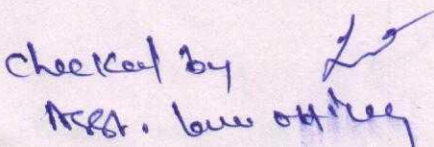 checked by
Asst. Law officer